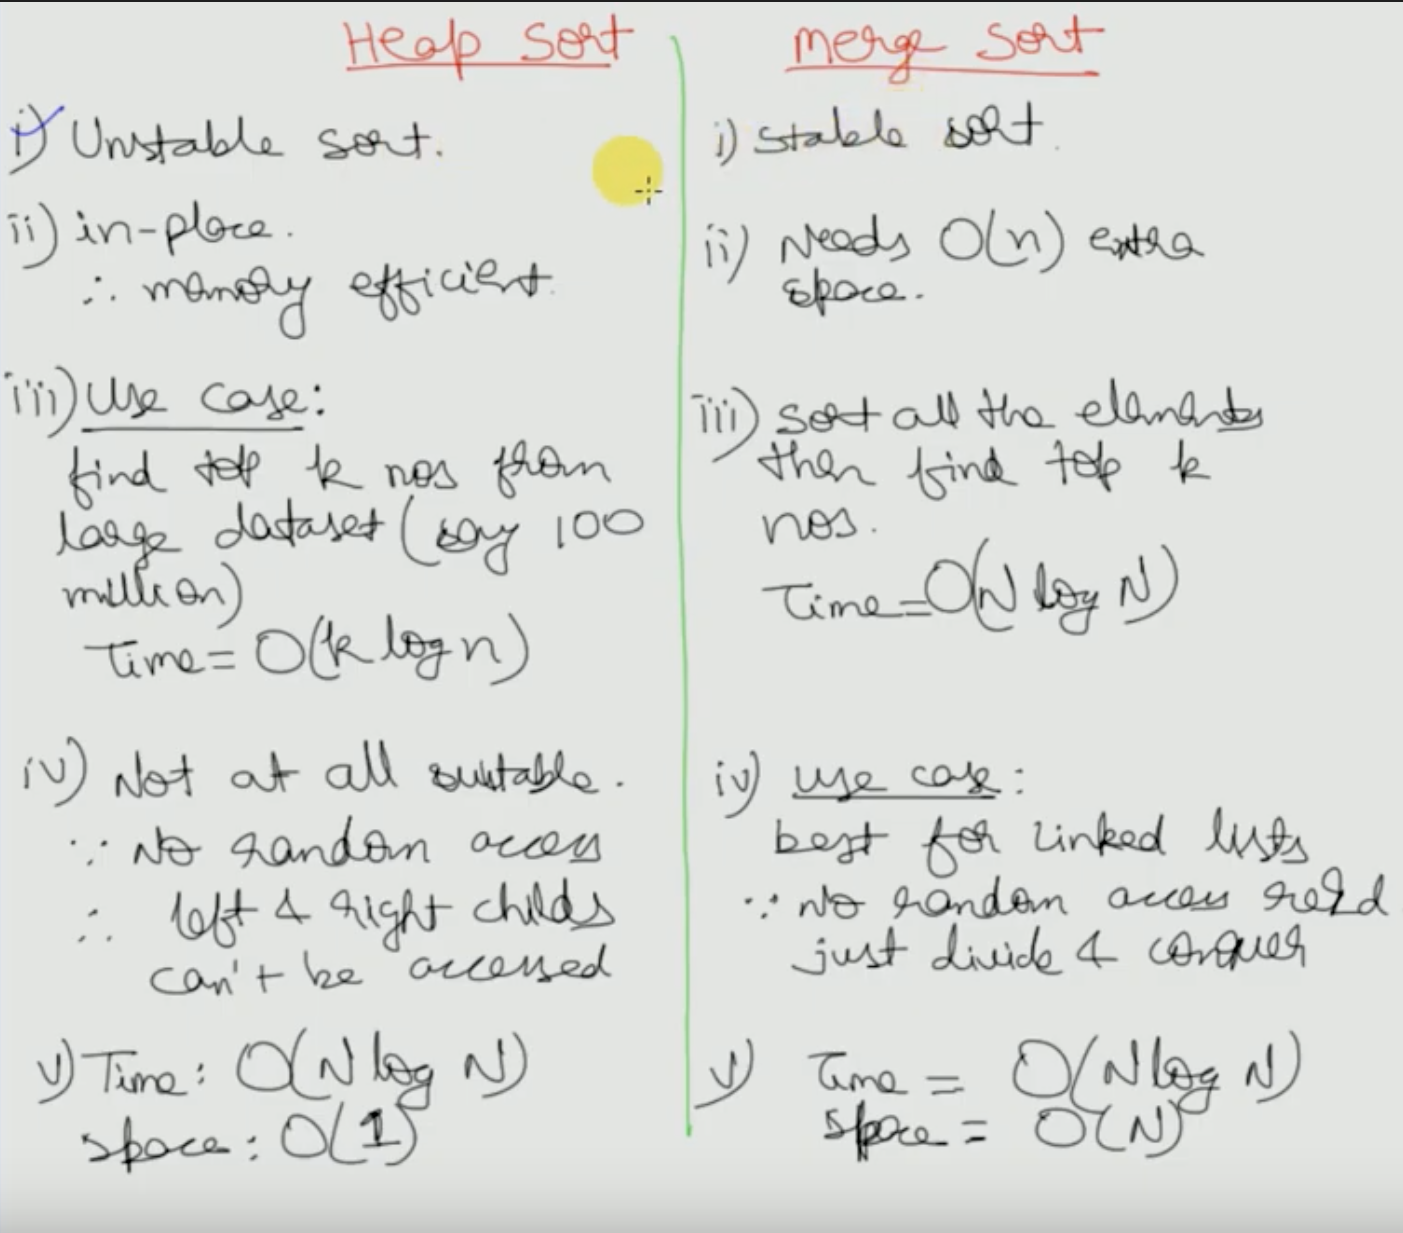 Heap Sort
i) Unstable sort.
ii) in-place.
∴ memory efficient.
iii) Use case:
find top k nos from
large dataset (say 100
million)
Time = O(k log n)
iv) Not at all suitable.
∵ No random access
∴ left & right childs
can't be accessed
v) Time: O(N log N)
space: O(1)
Merge Sort
i) Stable sort.
ii) Needs O(n) extra
space.
iii) sort all the elements
then find top k
nos.
Time = O(N log N)
iv) use case:
best for linked lists
∵ No random access reqd
just divide & conquer
v) Time = O(N log N)
Space = O(N)